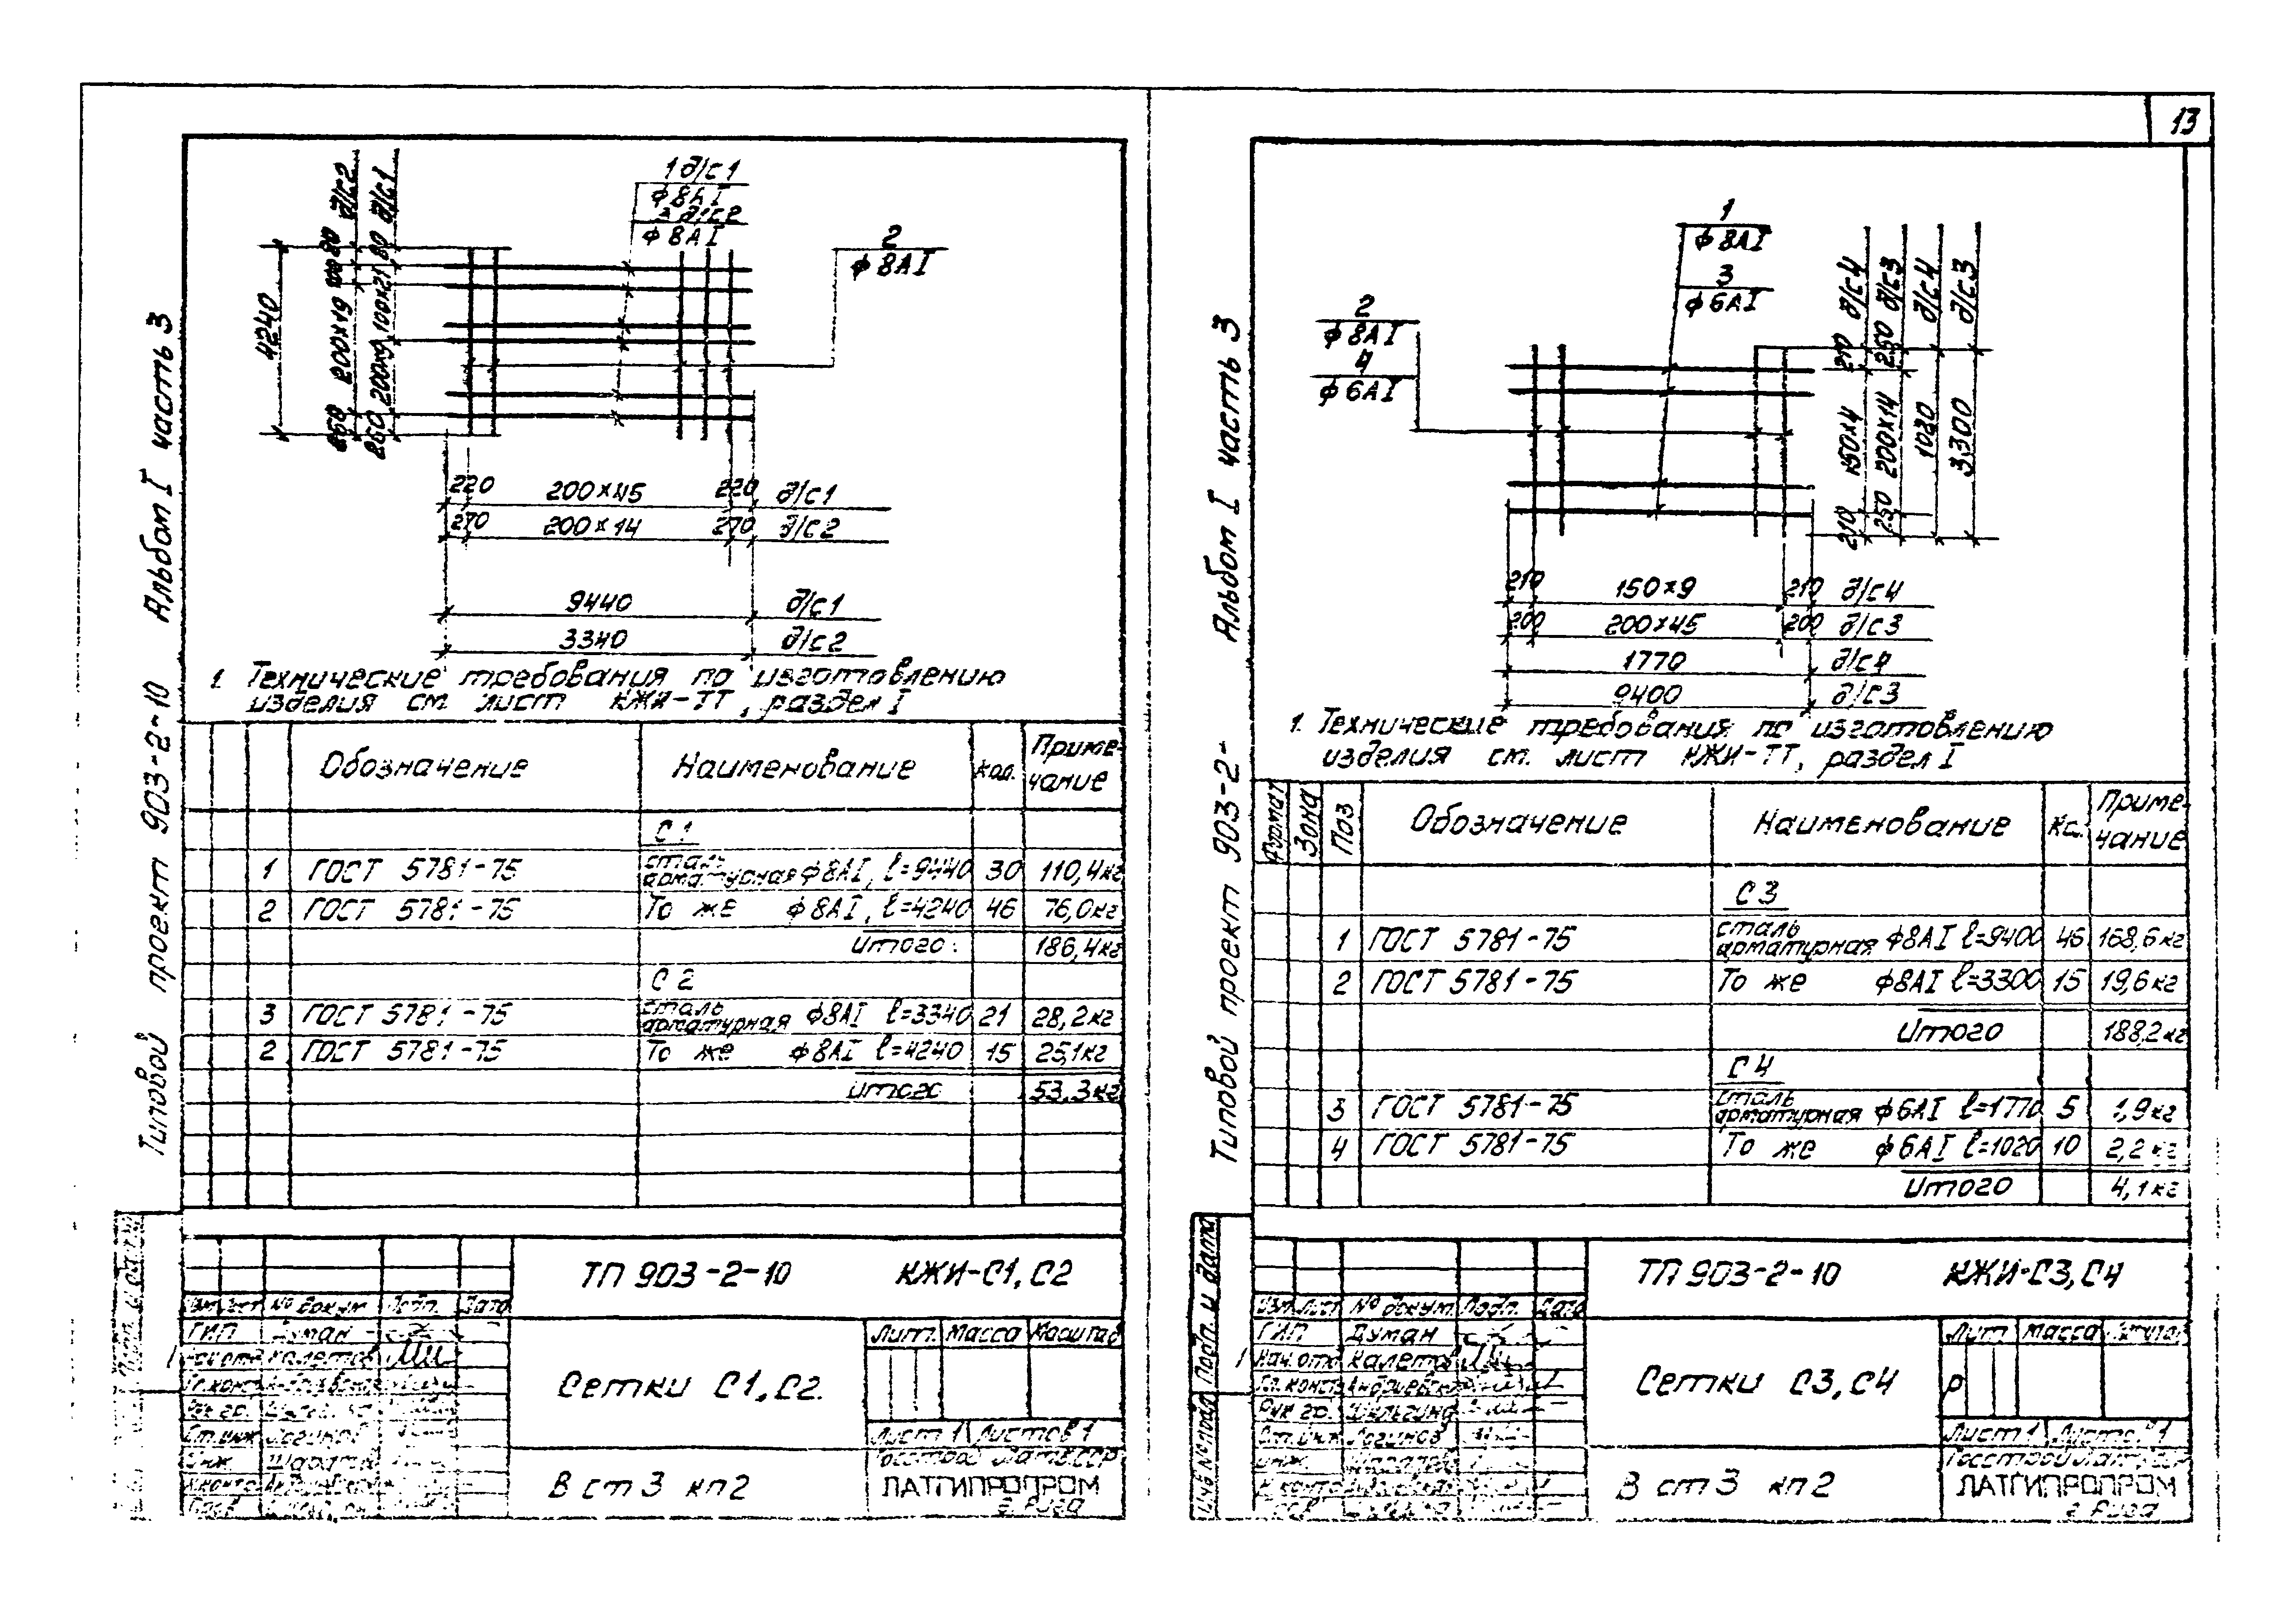 13
Типовой проект 903-2-10 Альбом I часть 3
1 д/с1
ф8АI
3 д/с2
ф8АI
2
ф8АI
д/с2
д/с1
80
100×21
200×19
200×9
4240
260
260
220 200×45 220 д/с1
270 200×14 270 д/с2
9440 д/с1
3340 д/с2
1. Технические требования по изготовлению
изделия см. лист КЖИ-ТТ, раздел I
Обозначение Наименование Кол. Приме-
чание
С1
1 ГОСТ 5781-75 сталь арматурная ф8АI, ℓ=9440 30 110,4кг
2 ГОСТ 5781-75 То же ф8АI, ℓ=4240 46 76,0кг
Итого: 186,4кг
С2
3 ГОСТ 5781-75 сталь арматурная ф8АI ℓ=3340 21 28,2кг
2 ГОСТ 5781-75 То же ф8АI ℓ=4240 15 25,1кг
Итого 53,3кг
ТП 903-2-10 КЖИ-С1, С2
Изм. Лист № докум. Подп. Дата
ГИП Думан
Нач.отд Калетов
Гл.конс
Рук.гр.
Ст.инж Логинов
Инж.
Сетки С1, С2.
Лит. Масса Масштаб
Лист 1 Листов 1
В ст 3 кп2
Госстрой Латв.ССР
ЛАТГИПРОПРОМ
г. Рига
Типовой проект 903-2- Альбом I часть 3
1
ф8АI
3
ф6АI
2
ф8АI
4
ф6АI
210 150×4 210 д/с4
250 200×14 250 д/с3
1020 д/с4
3300 д/с3
210 150×9 210 д/с4
200 200×45 200 д/с3
1770 д/с4
9400 д/с3
1. Технические требования по изготовлению
изделия см. лист КЖИ-ТТ, раздел I
Формат Зона Поз Обозначение Наименование Кол. Приме-
чание
С3
1 ГОСТ 5781-75 сталь арматурная ф8АI ℓ=9400 46 168,6кг
2 ГОСТ 5781-75 То же ф8АI ℓ=3300 15 19,6кг
Итого 188,2кг
С4
3 ГОСТ 5781-75 сталь арматурная ф6АI ℓ=1770 5 1,9кг
4 ГОСТ 5781-75 То же ф6АI ℓ=1020 10 2,2кг
Итого 4,1кг
ТП 903-2-10 КЖИ-С3, С4
Изм. Лист № докум. Подп. Дата
ГИП Думан
Нач.отд Калетов
Гл.конст
Рук.гр.
Ст.инж Логинов
Инж.
Сетки С3, С4
Лит Масса
Р
Лист 1 Листов 1
В ст 3 кп2
ЛАТГИПРОПРОМ
г. Рига
Инв.№подл. Подп. и дата